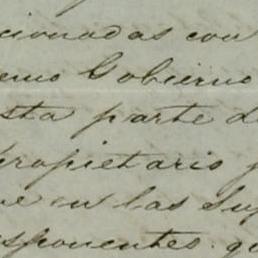 cionadas con
emo Gobierno
sta parte d
propietario y
ue en las su
sponentes. q